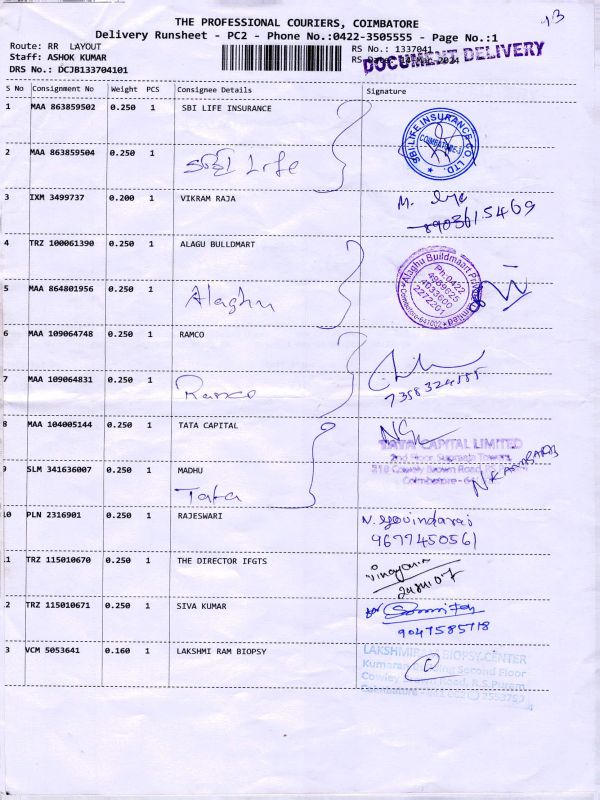 13
THE PROFESSIONAL COURIERS, COIMBATORE
Delivery Runsheet - PC2 - Phone No.:0422-3505555 - Page No.:1
Route: RR LAYOUT
Staff: ASHOK KUMAR
DRS No.: DCJB133704101
RS No.: 1337041
RS Date: 14-Mar-2024
DOCUMENT DELIVERY
S No Consignment No Weight PCS Consignee Details Signature
1 MAA 863859502 0.250 1 SBI LIFE INSURANCE
SBI LIFE INSURANCE CO. LTD.
COIMBATORE-3
2 MAA 863859504 0.250 1
Life
3 IXM 3499737 0.200 1 VIKRAM RAJA
M.
8903615469
4 TRZ 100061390 0.250 1 ALAGU BULLDMART
Alaghu Buildmaart Private Limited
Ph:0422
4989625
4033600
2272201
Coimbatore-641002
5 MAA 864801956 0.250 1
Alaghu
6 MAA 109064748 0.250 1 RAMCO
7358324555
7 MAA 109064831 0.250 1
Ramco
8 MAA 104005144 0.250 1 TATA CAPITAL
TATA CAPITAL LIMITED
2nd Floor, Supraja Towers
Cowley Brown Road,
Coimbatore - 64
9 SLM 341636007 0.250 1 MADHU
Tata
10 PLN 2316901 0.250 1 RAJESWARI
N. Govindaraj
9677450561
11 TRZ 115010670 0.250 1 THE DIRECTOR IFGTS
12 TRZ 115010671 0.250 1 SIVA KUMAR
for
9047585718
13 VCM 5053641 0.160 1 LAKSHMI RAM BIOPSY
LAKSHMI BIOPSY CENTER
Kumaran Building Second Floor
Cowley Brown Road, R.S.Puram
Coimbatore - 641 002